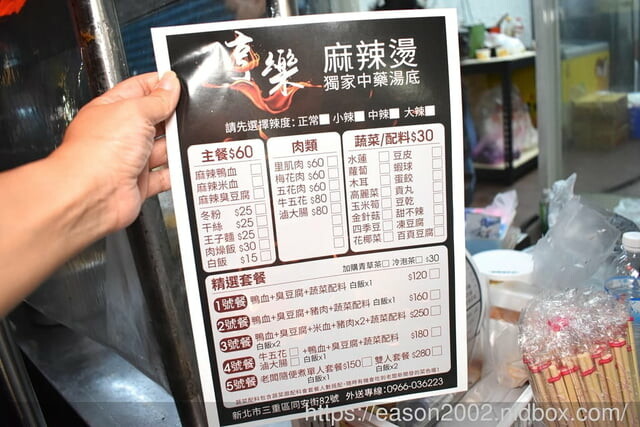 享樂 麻辣燙
獨家中藥湯底
請先選擇辣度: 正常 小辣 中辣 大辣
主餐$60
麻辣鴨血
麻辣米血
麻辣臭豆腐
冬粉 $25
干絲 $25
王子麵 $25
肉燥飯 $30
白飯 $15
肉類
里肌肉 $60
梅花肉 $60
五花肉 $60
牛五花 $80
滷大腸 $80
蔬菜/配料$30
水蓮 豆皮
蘿蔔 蝦球
木耳 蛋餃
高麗菜 貢丸
玉米筍 豆乾
金針菇 甜不辣
四季豆 凍豆腐
花椰菜 百頁豆腐
精選套餐 加購青草茶 冷泡茶 $30
1號餐 鴨血+臭豆腐+蔬菜配料 白飯x1 $120
2號餐 鴨血+臭豆腐+豬肉+蔬菜配料 白飯x1 $160
3號餐 鴨血+臭豆腐+米血+豬肉x2+蔬菜配料 $250
白飯x2
4號餐 牛五花 滷大腸 +鴨血+臭豆腐+蔬菜配料 $180
白飯x1
5號餐 老闆隨便煮單人套餐$150 雙人套餐$280
白飯x1 白飯x2
新北市三重區同安街82號 外送專線:0966-036223
https://eason2002.mdbox.com/